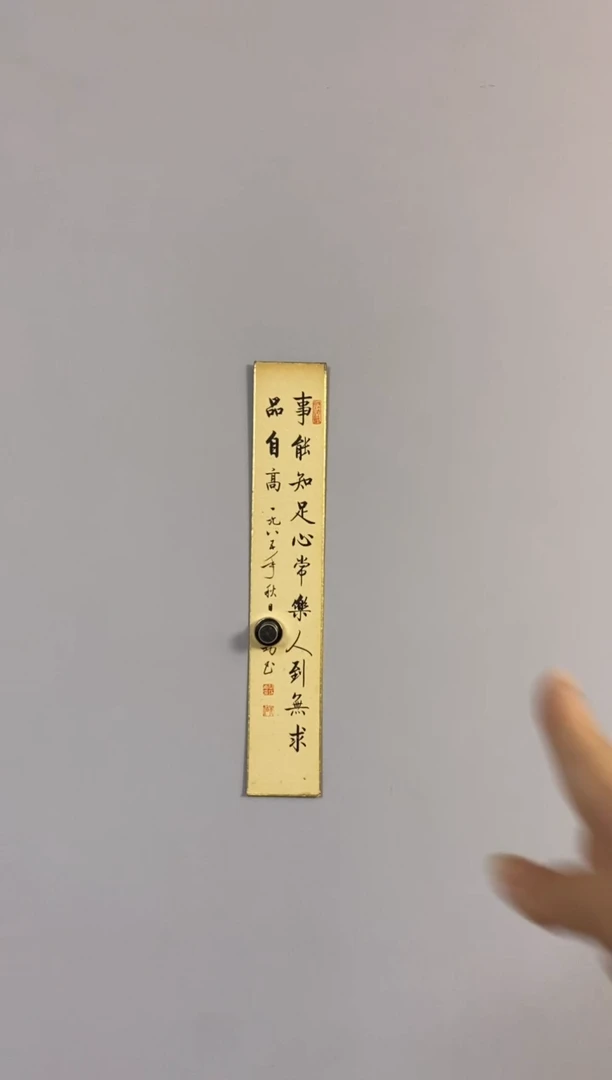 事能知足心常樂人到無求
品自高一九八五年秋日